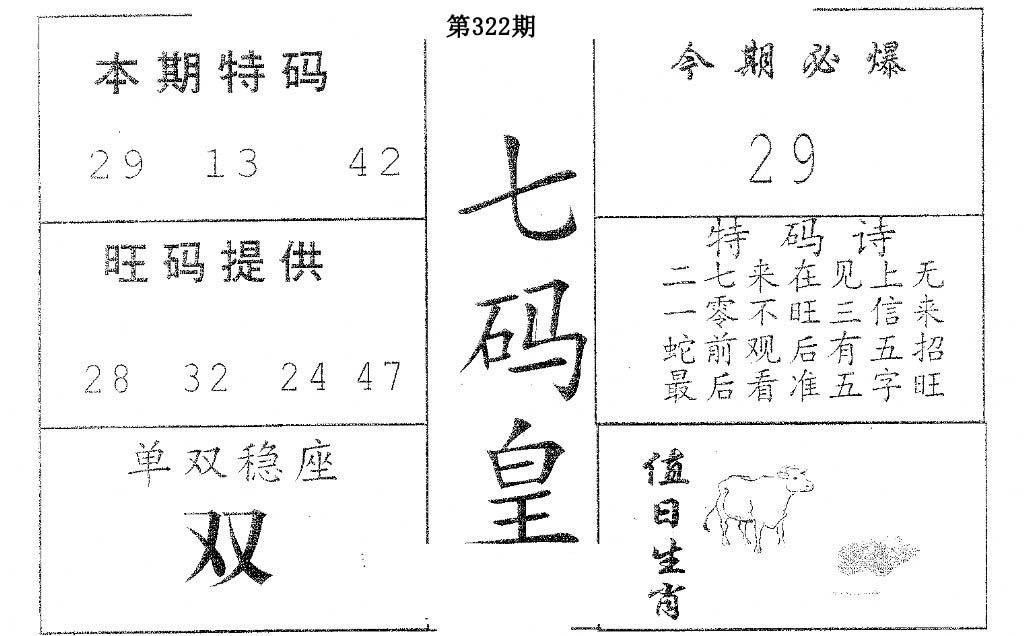 第322期
本期特码
29 13 42
旺码提供
28 32 24 47
单双稳座
双
七码皇
今期必爆
29
特码诗
二七来在见上无
一零不旺三信来
蛇前观后有五招
最后看准五字旺
值日生肖